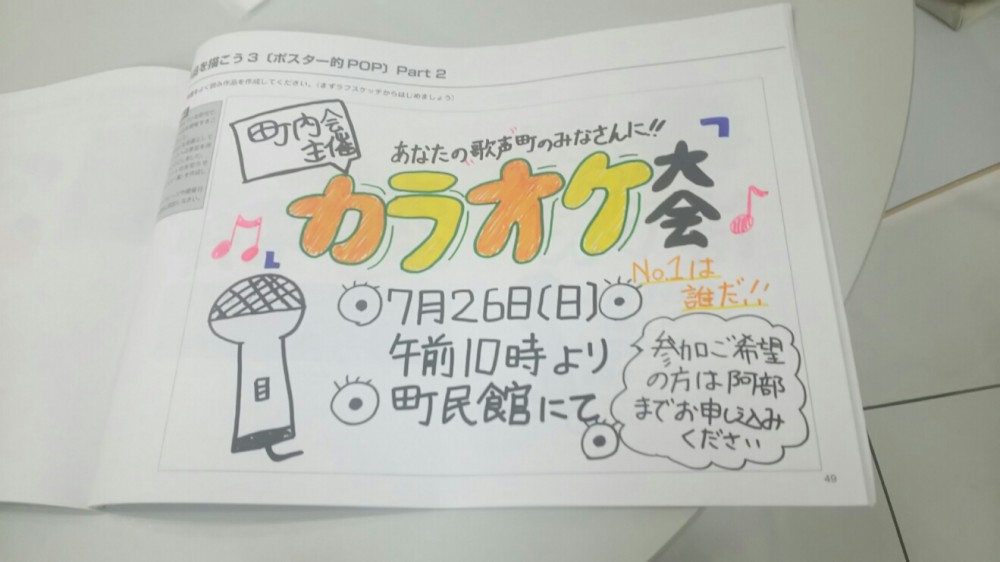 を描こう3〔ポスター的POP〕Part 2
作品を作成してください。(まずラフスケッチからはじめましょう)
町内会
主催
あなたの歌声町のみなさんに!!
カラオケ
大会
No.1は
誰だ!!
7月26日(日)
午前10時より
町民館にて
参加ご希望
の方は阿部
までお申し込み
ください
49